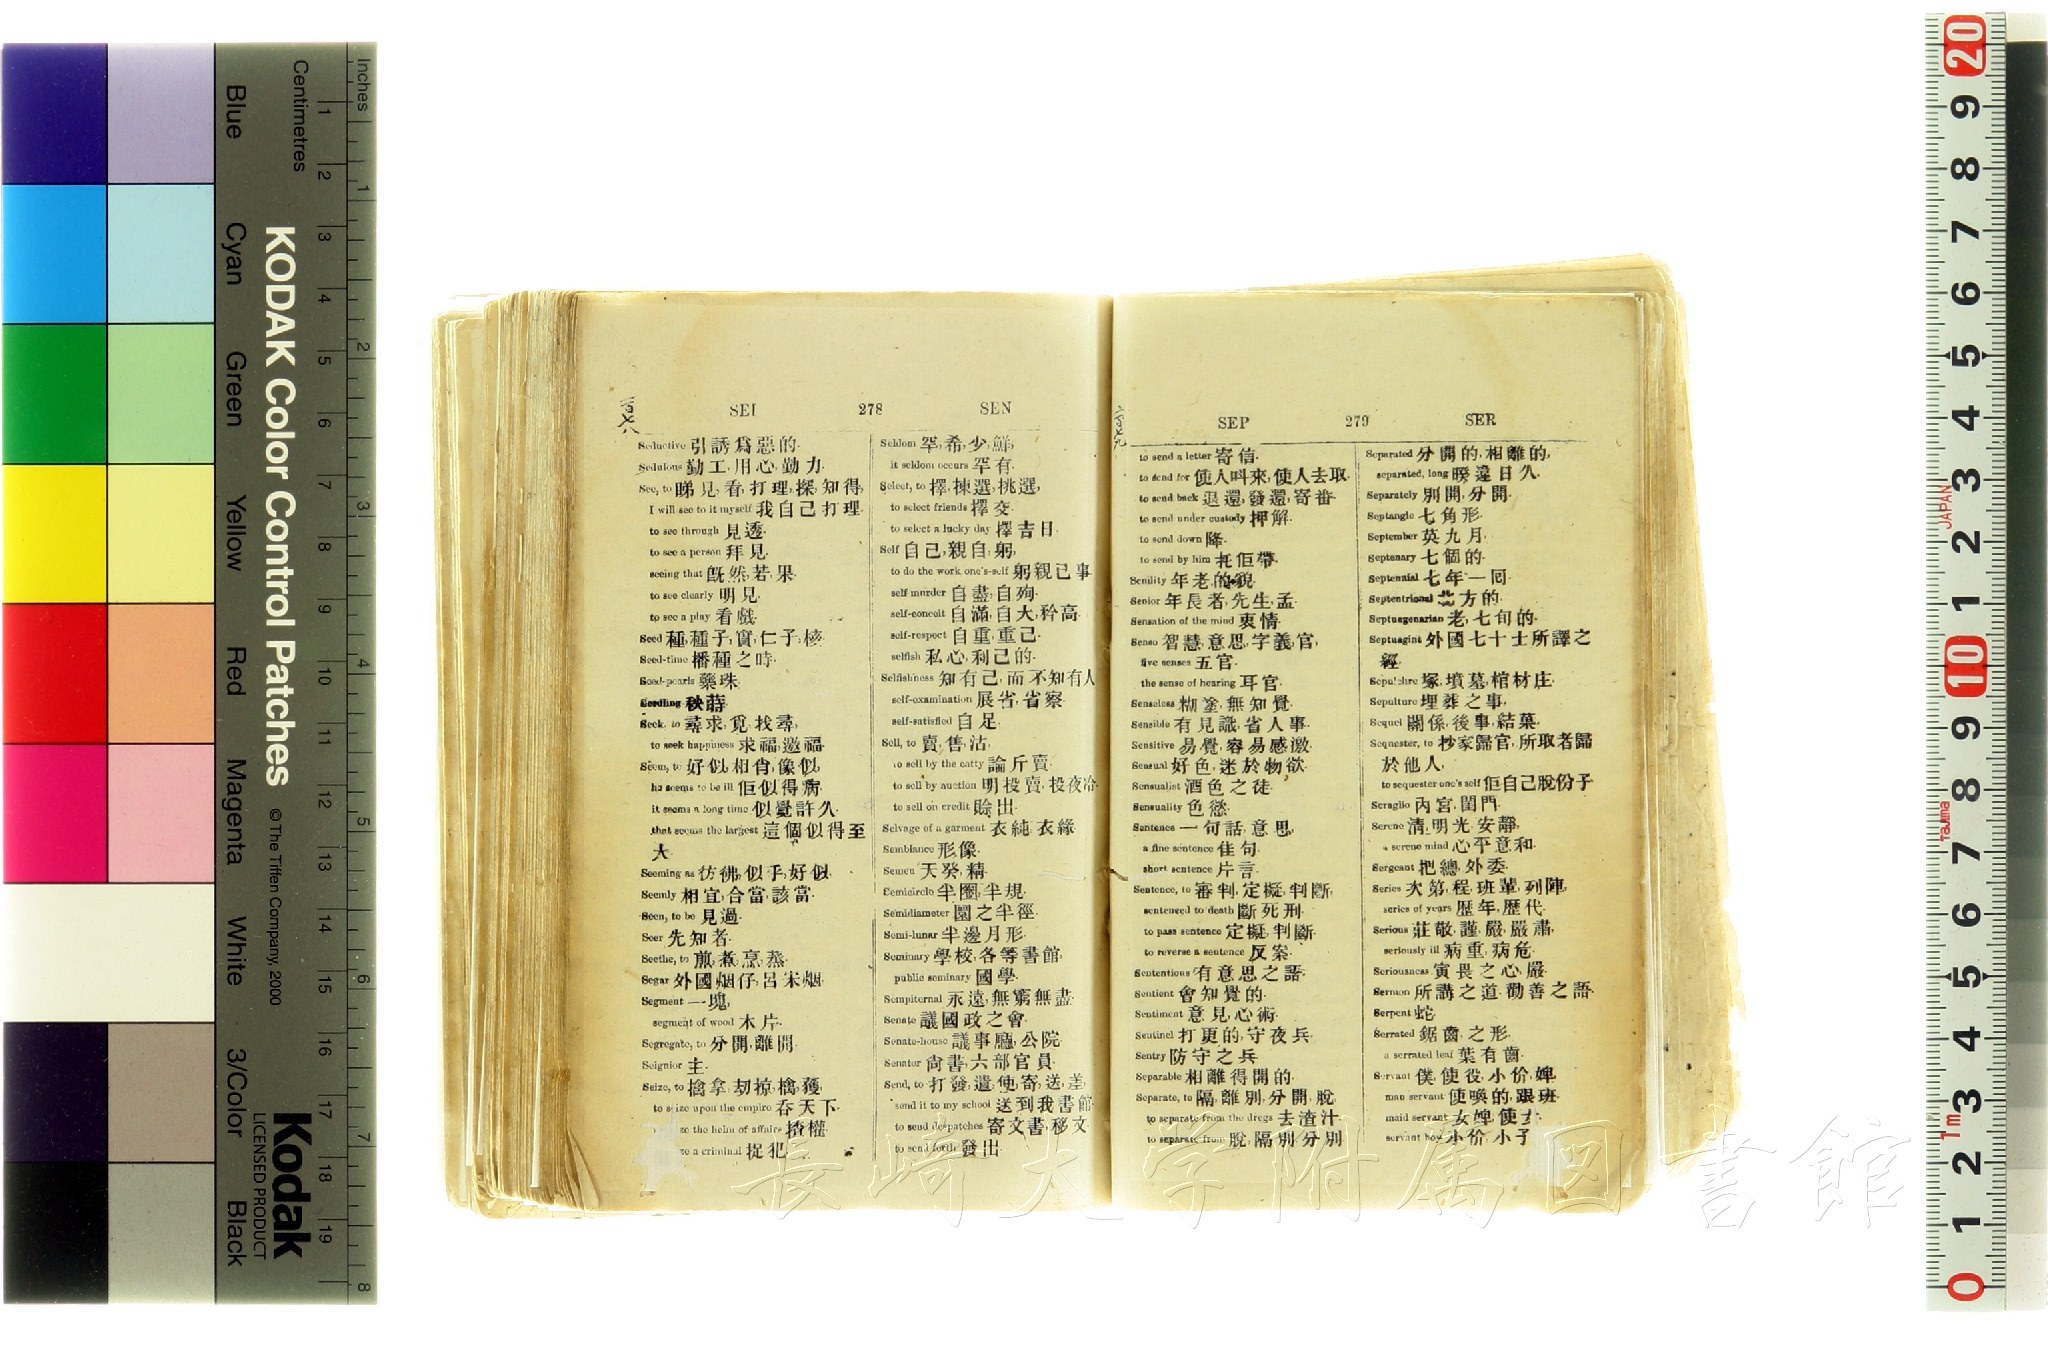 Inches
Centimetres
Blue
Cyan
Green
Yellow
Red
Magenta
White
3/Color
Black
KODAK Color Control Patches
© The Tiffen Company, 2000
Kodak
LICENSED PRODUCT
SEI 278 SEN
Seductive 引誘爲惡的
Sedulous 勤工,用心,勤力
See, to 睇見,看,打理,探,知得,
I will see to it myself 我自己打理
to see through 見透
to see a person 拜見
seeing that 既然,若果
to see clearly 明見
to see a play 看戲
Seed 種,種子,實,仁子,核
Seed-time 播種之時
Seed-pearls 藥珠
Seedling 秧蒔
Seek, to 尋求,覓,找尋,
to seek happiness 求福,邀福
Seem, to 好似,相肖,像似,
he seems to be ill 佢似得病
it seems a long time 似覺許久
that seems the largest 這個似得至
大
Seeming as 彷彿,似乎,好似
Seemly 相宜,合當,該當
Seen, to be 見過
Seer 先知者
Seethe, to 煎,煮,烹,蒸
Segar 外國烟仔,呂宋烟
Segment 一塊,
segment of wood 木片
Segregate, to 分開,離開
Seignior 主
Seize, to 擒拿,刼掠,擒,獲,
to seize upon the empire 吞天下
the helm of affairs 揸權
a criminal 捉犯
Seldom 罕,希,少,鮮,
it seldom occurs 罕有
Select, to 擇,揀選,挑選,
to select friends 擇交
to select a lucky day 擇吉日
Self 自己,親自,躬,
to do the work one's-self 躬親己事
self murder 自盡,自殉
self-conceit 自滿,自大,矜高
self-respect 自重,重己
selfish 私心,利己的
Selfishness 知有己,而不知有人
self-examination 展省,省察
self-satisfied 自足
Sell, to 賣,售,沽,
to sell by the catty 論斤賣
to sell by auction 明投賣,投夜冷
to sell on credit 賒出
Selvage of a garment 衣純,衣緣
Semblance 形像
Semen 天癸,精
Semicircle 半圈,半規
Semidiameter 圜之半徑
Semi-lunar 半邊月形
Seminary 學校,各等書館,
public seminary 國學
Sempiternal 永遠,無窮無盡
Senate 議國政之會
Senate-house 議事廳,公院
Senator 尙書,六部官員
Send, to 打發,遣,使,寄,送,差,
send it to my school 送到我書館
to send despatches 寄文書,移文
to send forth 發出
SEP 279 SER
to send a letter 寄信
to send for 使人呌來,使人去取
to send back 退還,發還,寄番
to send under custody 押解
to send down 降
to send by him 托佢帶
Senility 年老的貌
Senior 年長者,先生,孟
Sensation of the mind 衷情
Sense 智慧,意思,字義,官,
five senses 五官
the sense of hearing 耳官
Senseless 糊塗,無知覺
Sensible 有見識,省人事
Sensitive 易覺,容易感激
Sensual 好色,迷於物欲
Sensualist 酒色之徒
Sensuality 色慾
Sentence 一句話,意思,
a fine sentence 佳句
short sentence 片言
Sentence, to 審判,定擬,判斷,
sentenced to death 斷死刑
to pass sentence 定擬,判斷
to reverse a sentence 反案
Sententious 有意思之語
Sentient 會知覺的
Sentiment 意見,心術
Sentinel 打更的,守夜兵
Sentry 防守之兵
Separable 相離得開的
Separate, to 隔,離別,分開,脫,
to separate from the dregs 去渣汁
to separate from 脫,隔別,分別
Separated 分開的,相離的,
separated, long 暌違日久
Separately 別開,分開
Septangle 七角形
September 英九月
Septenary 七個的
Septennial 七年一回
Septentrional 北方的
Septuagenarian 老,七旬的
Septuagint 外國七十士所譯之
經
Sepulchre 塚,墳墓,棺材庄
Sepulture 埋葬之事
Sequel 關係,後事,結菓
Sequester, to 抄家歸官,所取者歸
於他人,
to sequester one's self 佢自己脫份子
Seraglio 內宮,閨門
Serene 清,明光,安靜,
a serene mind 心平意和
Sergeant 把總,外委
Series 次第,程,班輩,列陣,
series of years 歷年,歷代
Serious 莊敬,謹,嚴,嚴肅,
seriously ill 病重,病危
Seriousness 寅畏之心,嚴
Sermon 所講之道,勸善之語
Serpent 蛇
Serrated 鋸齒之形
a serrated leaf 葉有齒
Servant 僕,使役,小价,婢,
man servant 使喚的,跟班
maid servant 女婢,使女
servant boy 小价,小子
長崎大学附属図書館
JAPAN
Tajima
1m